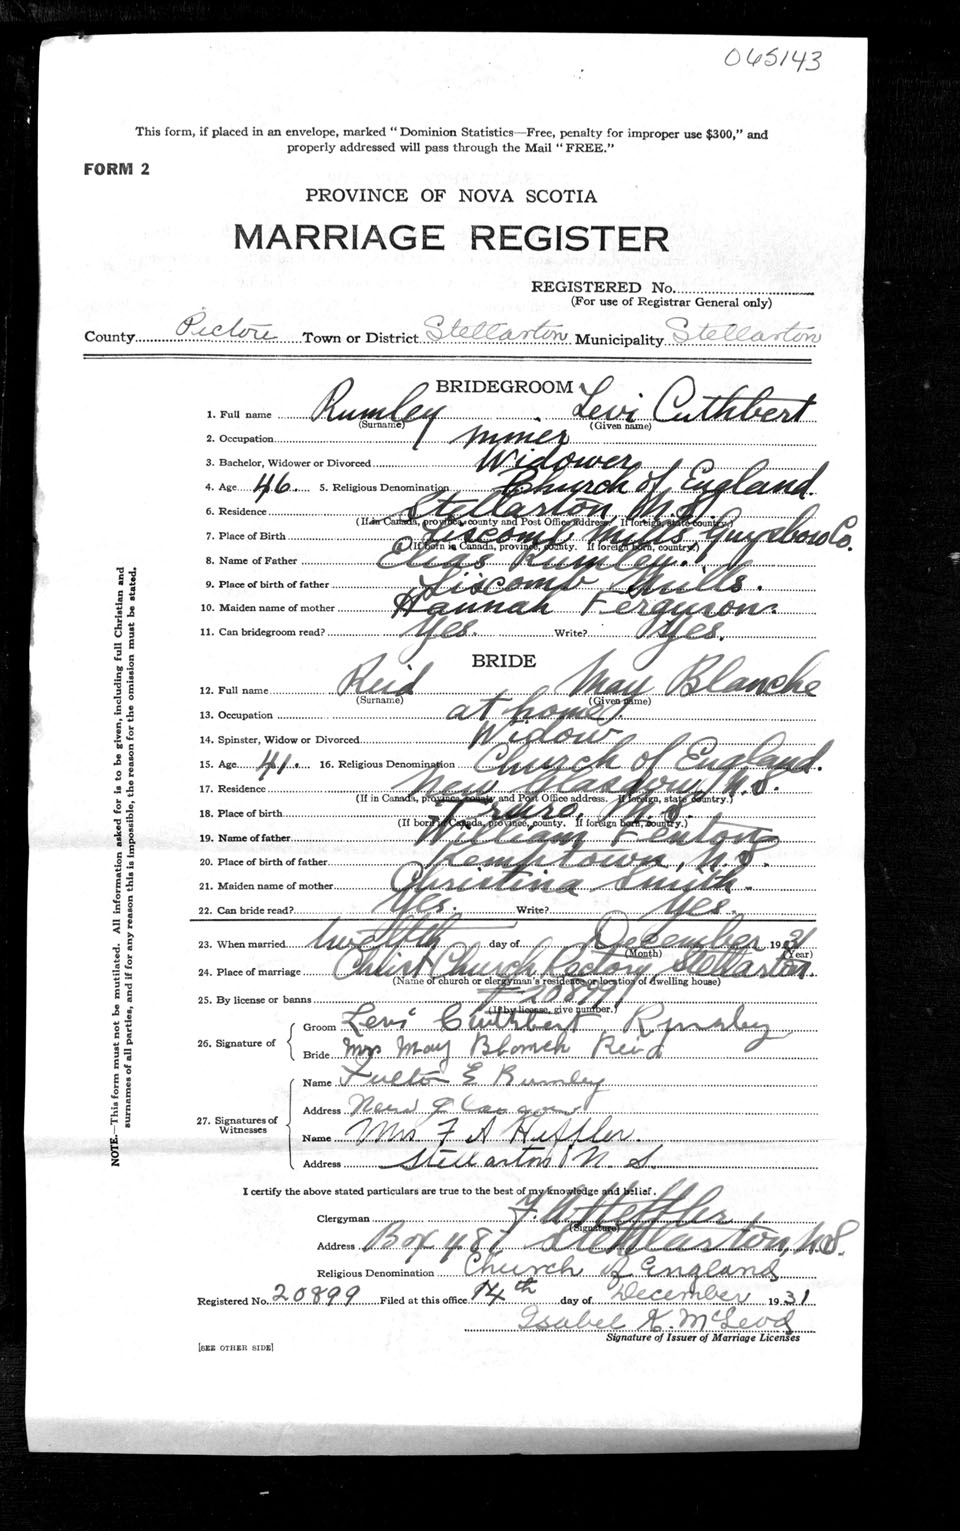 065143
This form, if placed in an envelope, marked "Dominion Statistics—Free, penalty for improper use $300," and
properly addressed will pass through the Mail "FREE."
FORM 2
PROVINCE OF NOVA SCOTIA
MARRIAGE REGISTER
REGISTERED No.
(For use of Registrar General only)
County Pictou Town or District Stellarton Municipality Stellarton
BRIDEGROOM
1. Full name Rumley Levi Cuthbert
(Surname) (Given name)
2. Occupation miner
3. Bachelor, Widower or Divorced Widower
4. Age 46. 5. Religious Denomination Church of England.
6. Residence Stellarton, N.S.
(If in Canada, province, county and Post Office address. If foreign, state country.)
7. Place of Birth Liscomb Mills Guysboro Co.
(If born in Canada, province, county. If foreign born, country.)
8. Name of Father Elias Rumley.
9. Place of birth of father Liscomb Mills.
10. Maiden name of mother Hannah Ferguson.
11. Can bridegroom read? Yes. Write? Yes.
BRIDE
12. Full name Reid May Blanche
(Surname) (Given name)
13. Occupation at home.
14. Spinster, Widow or Divorced Widow
15. Age 41. 16. Religious Denomination Church of England.
17. Residence New Glasgow, N.S.
(If in Canada, province, county and Post Office address. If foreign, state country.)
18. Place of birth Truro, N.S.
(If born in Canada, province, county. If foreign born, country.)
19. Name of father William Fenton
20. Place of birth of father Kemptown, N.S.
21. Maiden name of mother Christina Smith.
22. Can bride read? Yes. Write? Yes.
23. When married twelfth day of December 1931
(Month) (Year)
24. Place of marriage Christ Church Rectory Stellarton.
(Name of church or clergyman's residence or location of dwelling house)
25. By license or banns 20899
(If by license, give number.)
26. Signature of
Groom Levi Cuthbert Rumley
Bride Mrs May Blanch Reid
27. Signatures of
Witnesses
Name Fulton E Rumley
Address New Glasgow
Name Mrs F A Heffler.
Address Stellarton N. S.
I certify the above stated particulars are true to the best of my knowledge and belief.
Clergyman F. A Heffler
(Signature)
Address Box 487 Stellarton, N.S.
Religious Denomination Church of England
Registered No. 20899 Filed at this office 14th day of December 1931
Isabel K. McLeod
Signature of Issuer of Marriage Licenses
[SEE OTHER SIDE]
NOTE.—This form must not be mutilated. All information asked for is to be given, including full Christian and
surnames of all parties, and if for any reason this is impossible, the reason for the omission must be stated.